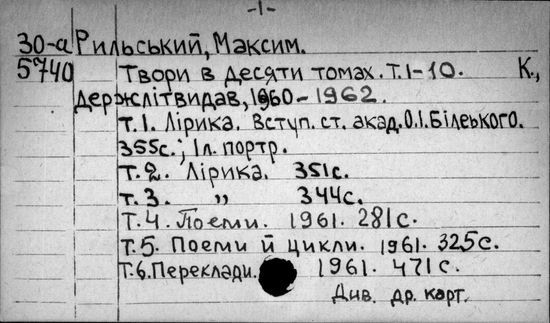 -1-
30-а Рильський, Максим.
5740 Твори в десяти томах. Т.1-10. К.,
Держлітвидав, 1960-1962.
т.1. Лірика. Вступ. ст. акад. О.І. Білецького.
355с.; Іл. портр.
т.2. Лірика. 351с.
т.3. " 344с.
т.4. Поеми. 1961. 281с.
т.5. Поеми й цикли. 1961. 325с.
т.6. Переклади. 1961. 471с.
Див. др. карт.